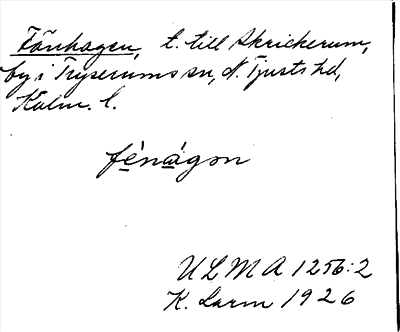 Fänhagen, t. till Skrickerum,
by i Tryserums sn, N. Tjusts hd,
Kalm. l.
fènágon
ULMA 1256:2
K. Larm 1926